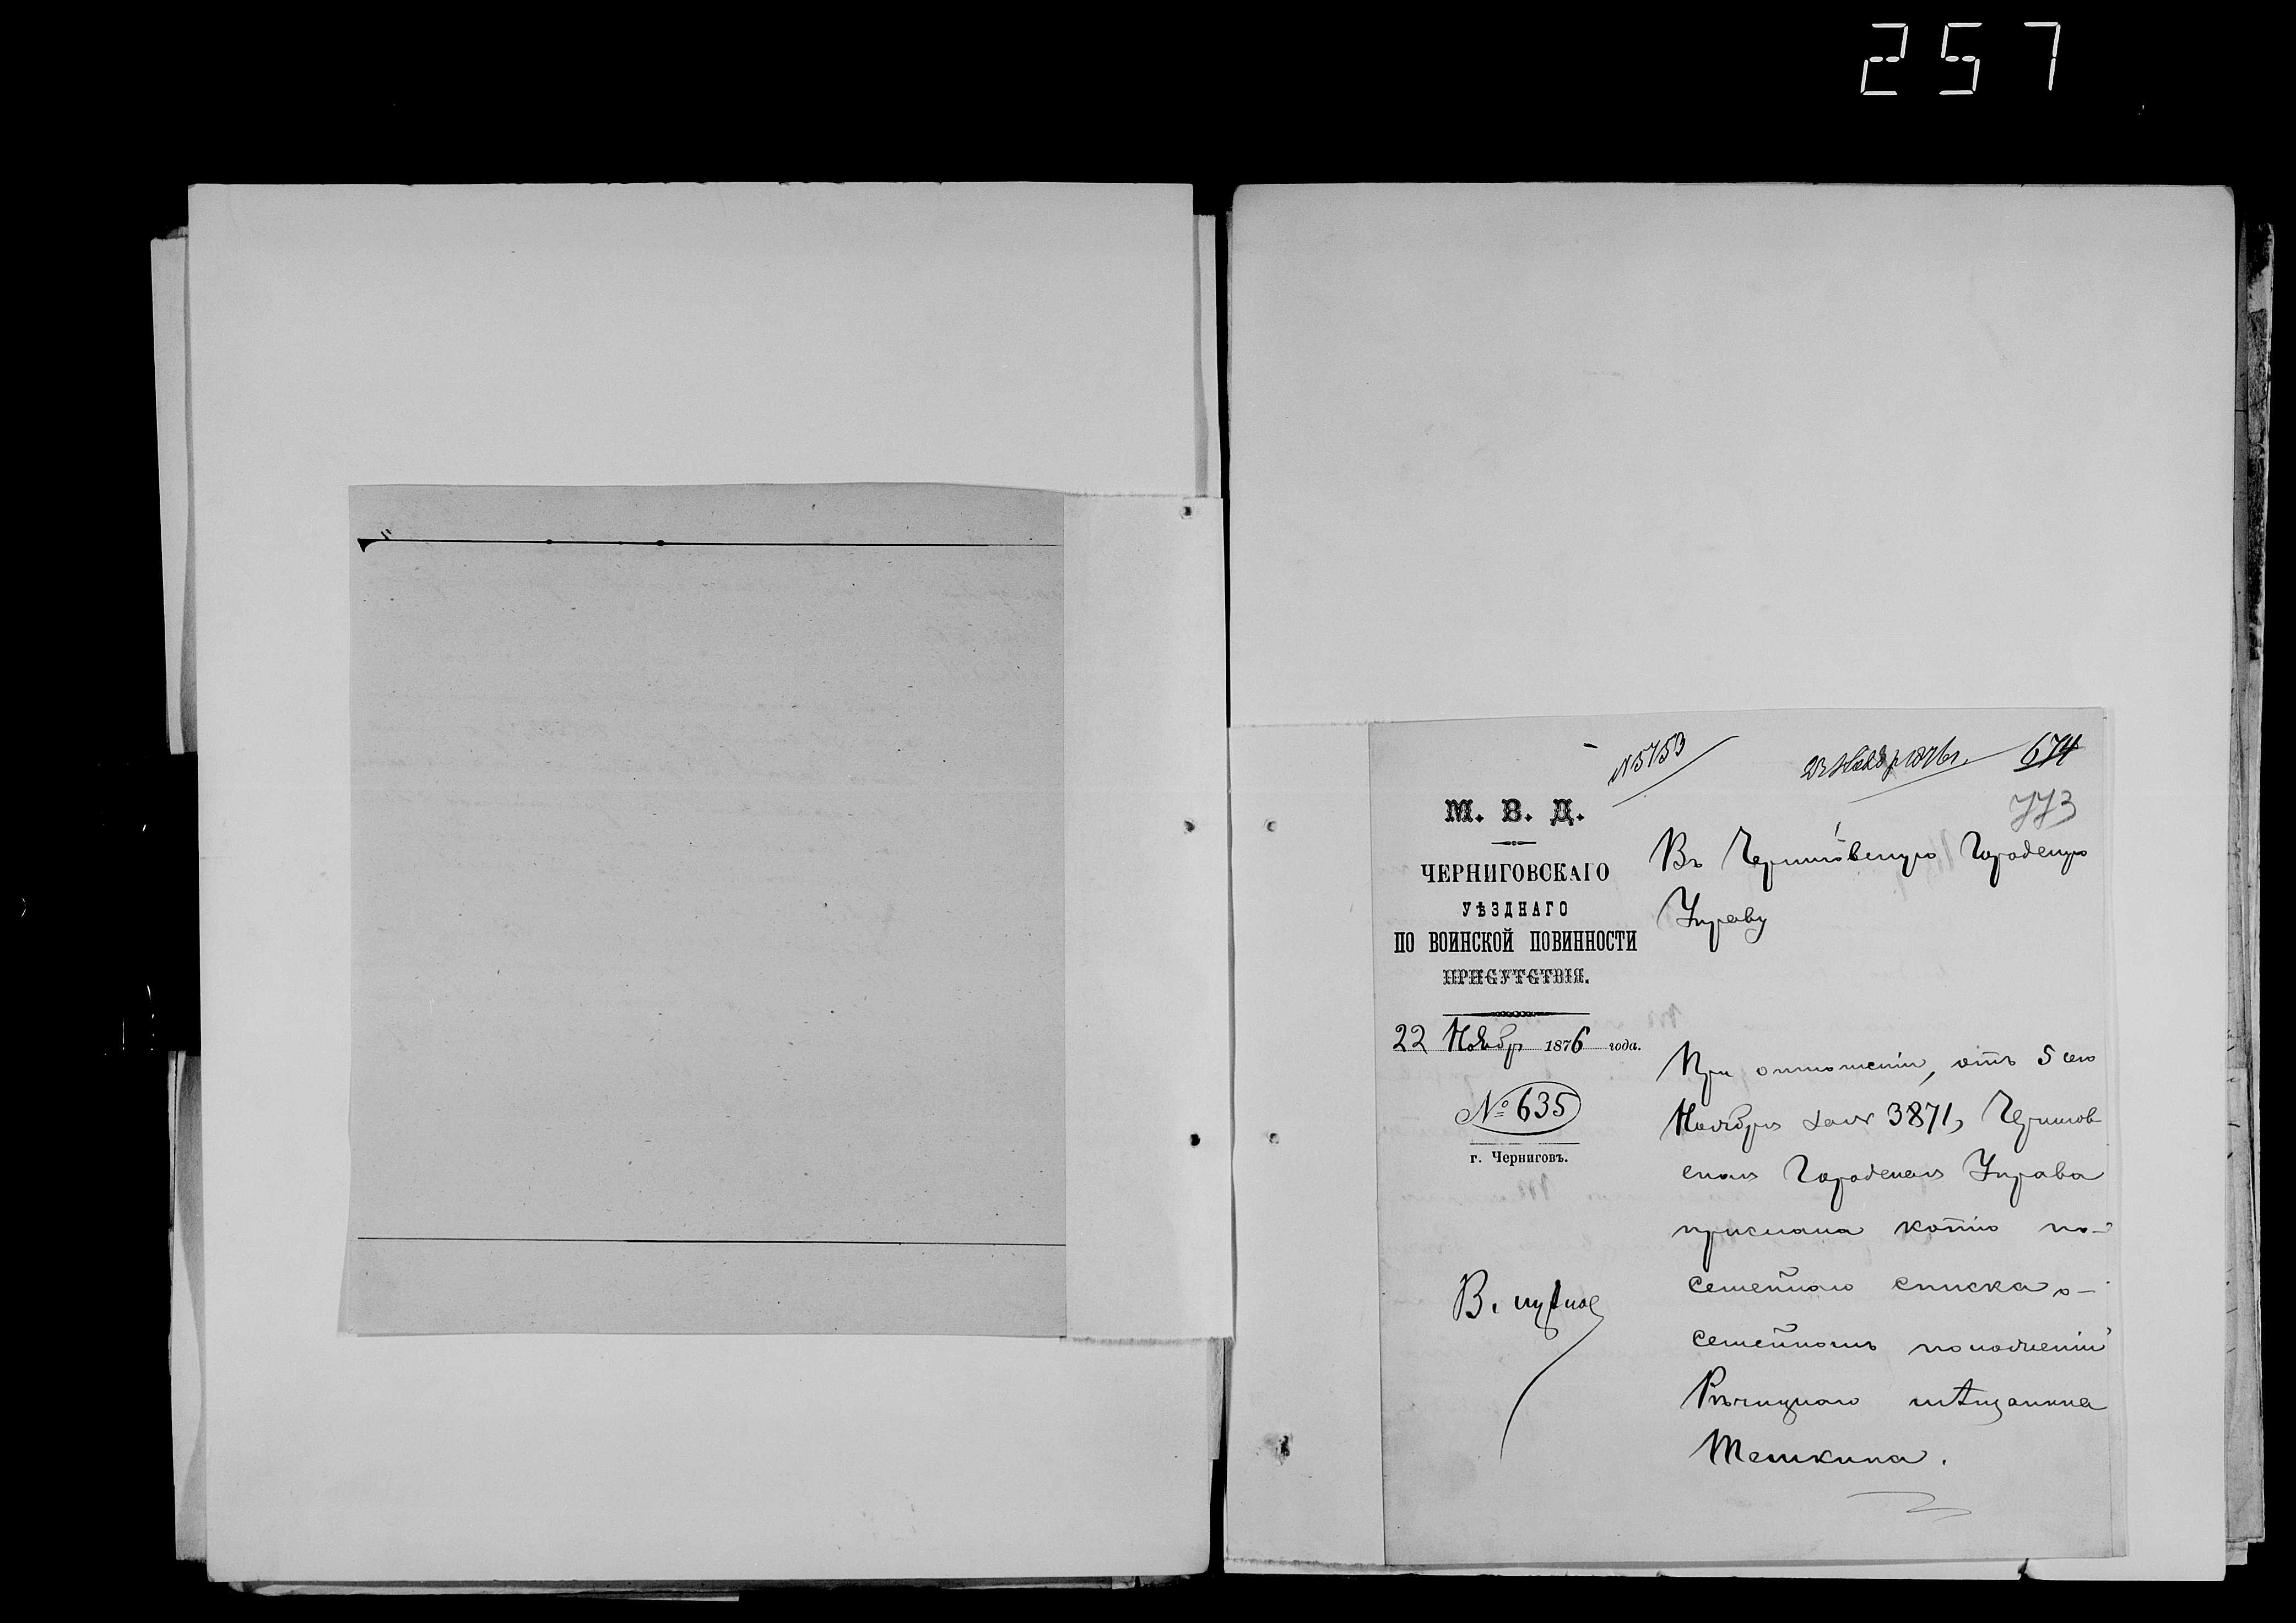 257
N 5753
23 Ноябр 1876 г.
674
773
М. В. Д.
ЧЕРНИГОВСКАГО
УѢЗДНАГО
ПО ВОИНСКОЙ ПОВИННОСТИ
ПРИСУТСТВІЯ.
22 Ноябр 1876 года.
№ 635
г. Черниговъ.
Въ Черниговскую Городскую
Управу
При отношеніи, отъ 5 сего
Ноября за № 3871, Чернигов
ская Городская Управа
прислала копію по-
семейнаго списка о-
семейномъ положеніи
Рѣчицкаго мѣщанина
Темкина.